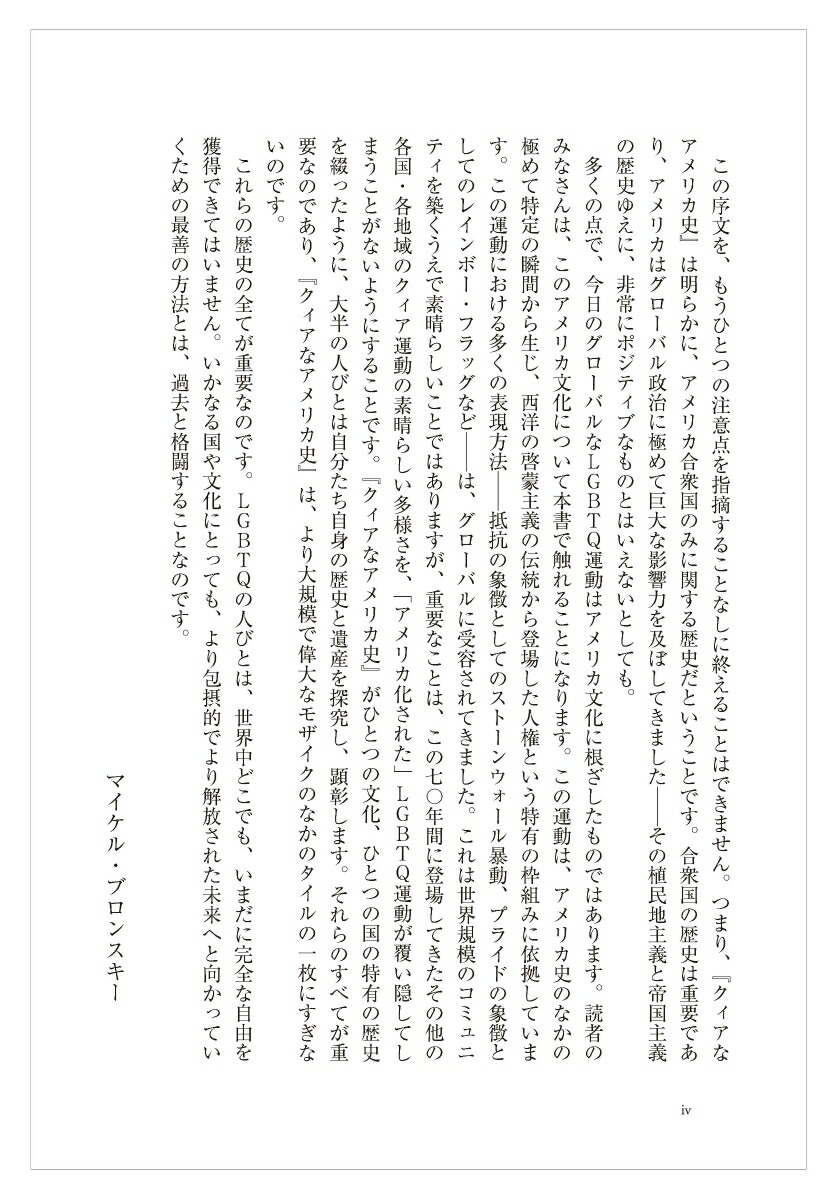 この序文を、もうひとつの注意点を指摘することなしに終えることはできません。つまり、『クィアな
アメリカ史』は明らかに、アメリカ合衆国のみに関する歴史だということです。合衆国の歴史は重要であ
り、アメリカはグローバル政治に極めて巨大な影響力を及ぼしてきました――その植民地主義と帝国主義
の歴史ゆえに、非常にポジティブなものとはいえないとしても。
多くの点で、今日のグローバルなLGBTQ運動はアメリカ文化に根ざしたものではあります。読者の
みなさんは、このアメリカ文化について本書で触れることになります。この運動は、アメリカ史のなかの
極めて特定の瞬間から生じ、西洋の啓蒙主義の伝統から登場した人権という特有の枠組みに依拠していま
す。この運動における多くの表現方法――抵抗の象徴としてのストーンウォール暴動、プライドの象徴と
してのレインボー・フラッグなど――は、グローバルに受容されてきました。これは世界規模のコミュニ
ティを築くうえで素晴らしいことではありますが、重要なことは、この七〇年間に登場してきたその他の
各国・各地域のクィア運動の素晴らしい多様さを、「アメリカ化された」LGBTQ運動が覆い隠してし
まうことがないようにすることです。『クィアなアメリカ史』がひとつの文化、ひとつの国の特有の歴史
を綴ったように、大半の人びとは自分たち自身の歴史と遺産を探究し、顕彰します。それらのすべてが重
要なのであり、『クィアなアメリカ史』は、より大規模で偉大なモザイクのなかのタイルの一枚にすぎな
いのです。
これらの歴史の全てが重要なのです。LGBTQの人びとは、世界中どこでも、いまだに完全な自由を
獲得できてはいません。いかなる国や文化にとっても、より包摂的でより解放された未来へと向かってい
くための最善の方法とは、過去と格闘することなのです。
マイケル・ブロンスキー
iv